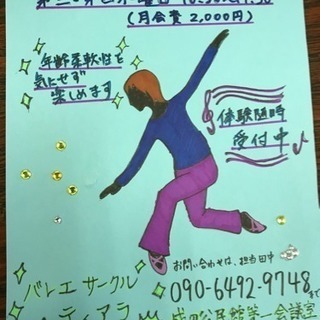 (月会費 2,000円)
年齢柔軟性を
気にせず
楽しめます
体験随時
受付中
お問い合わせは、担当田中
090-6492-9748まで
バレエ サークル
ティアラ
公民館第一会議室